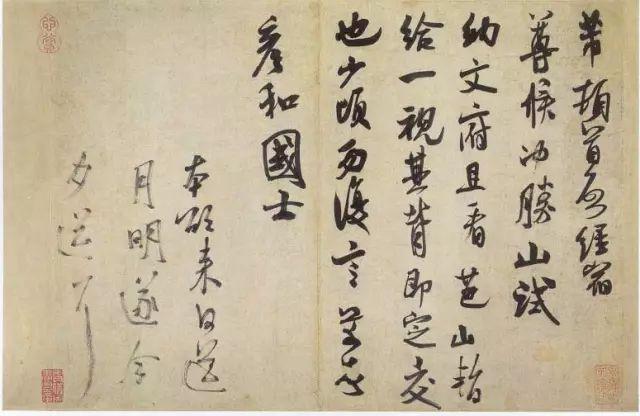 芾頓首再啓經宿
尊候沖勝山試
納文府且看芭山暫
給一視其背即定交
也少頃勿復言芾頓首
彥和國士
本欲來日送
月明遂今
夕送耳